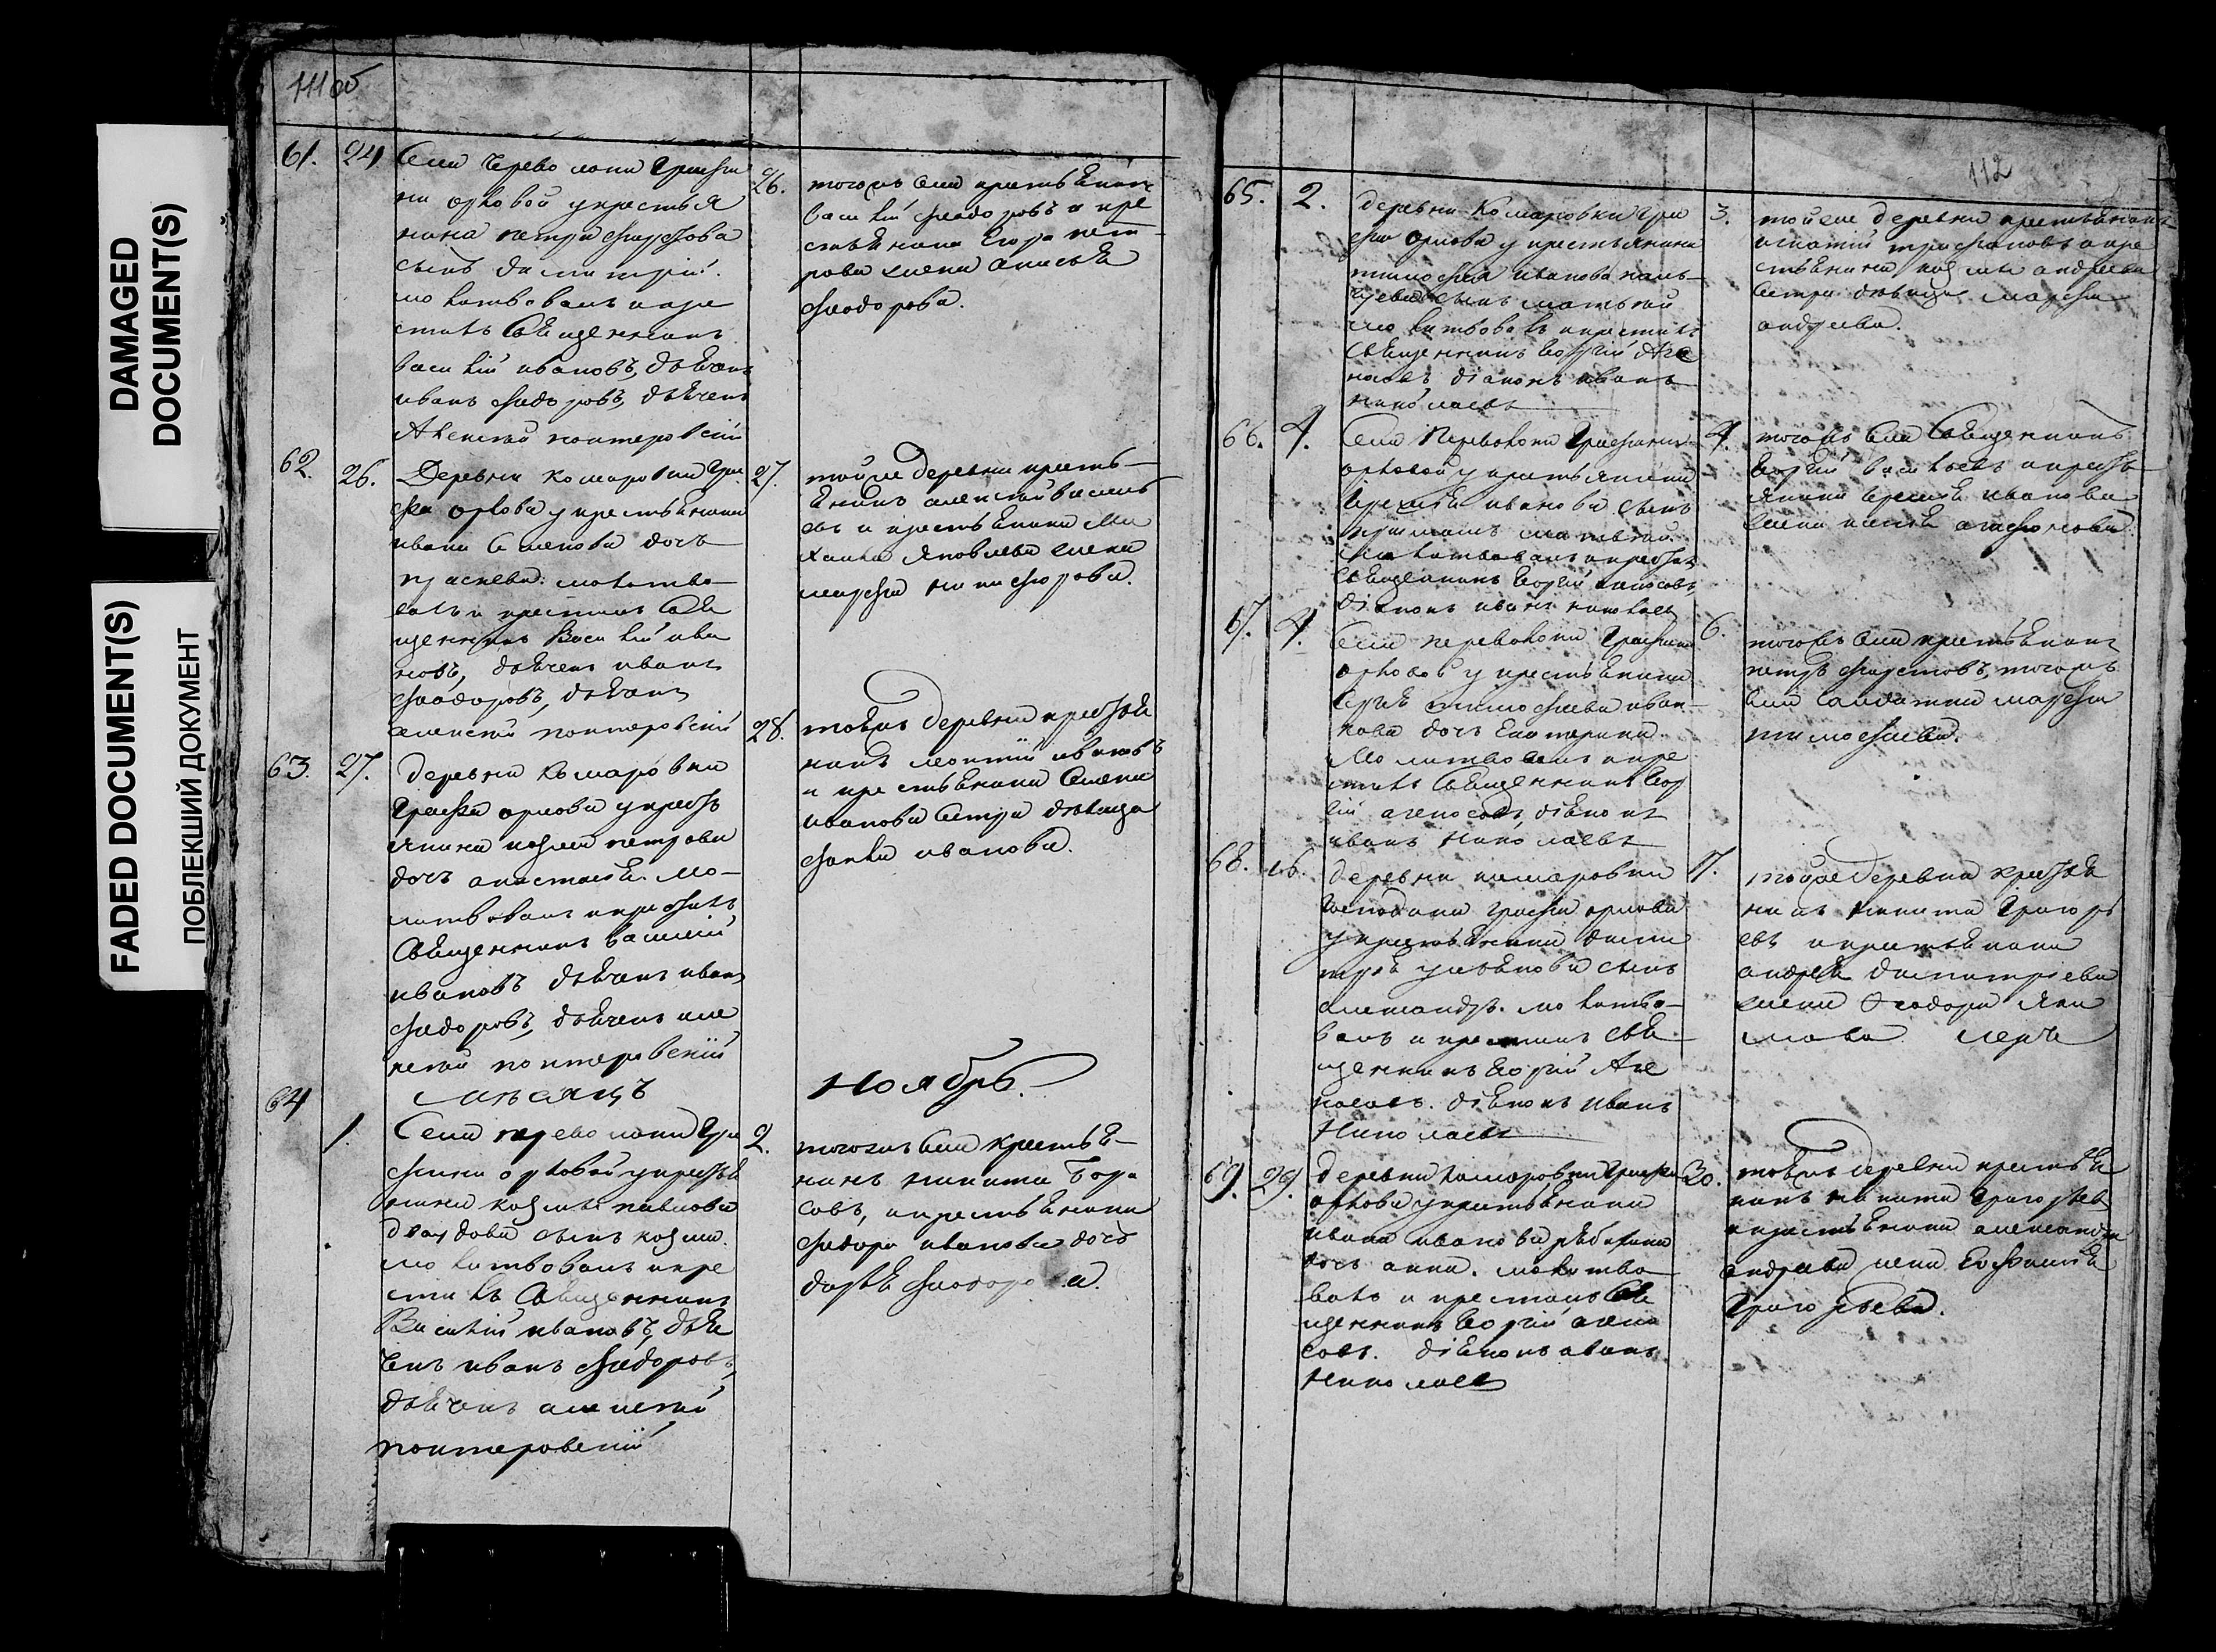 DAMAGED
DOCUMENT(S)
FADED DOCUMENT(S)
ПОБЛЕКШИЙ ДОКУМЕНТ
111 об
61. 24
Села Перево локи Графи
ни орловой у крестья
нина петра
сынъ димитрiй.
молитвовалъ и кре
стилъ Священникъ
Василiй ивановъ, дьячекъ
иванъ феодоровъ, дьячекъ
Алексѣй
26.
тогожъ села крестьянинъ
Василiй феодоровъ и кре
стьянина Егора пет
рова жена анисья
феодорова.
62. 26.
Деревни комаровки Гра
фа орлова у крестьянина
ивана Семенова дочь
праскева. молитво
валъ и крестилъ Свя
щенникъ Василiй ива
новъ, дьячекъ иванъ
феодоровъ, дьячекъ
алексѣй
27.
тойже деревни кресть
янинъ алексѣй василь
евъ и крестьянина Ми
хаила Яковлева жена
марфа никифорова.
63. 27.
деревни комаровки
Графа орлова у кресть
янина козмы петрова
дочь анастасья. Мо
литвовалъ и крестилъ
Священникъ василiй
ивановъ дьячекъ иванъ
феодоровъ, дьячекъ але
ксѣй
28.
тояжъ деревни крестья
нинъ ивановъ
и крестьянина Семена
иванова сестра дѣвица
иванова.
мѣсяцъ
ноябрь.
64 1.
Села перево локи Гра
фини орловой у крестья
нина козмы павлова
сынъ козма.
молитвовалъ и кре
стилъ Священникъ
Василiй ивановъ, дья
чекъ иванъ феодоровъ,
дьячекъ алексѣй
2.
тогожъ села крестья
нинъ никита Бори
совъ, и крестьянина
феодора иванова дочь
дарья феодорова.
112
65. 2.
деревни Комаровки Гра
фа орлова у крестьянина
тимофея иванова
сынъ матвѣй
молитвовалъ и крестилъ
Священникъ Георгiй
дiаконъ иванъ
николаевъ
3.
тойже деревни крестьянинъ
игнатiй трофимовъ и кре
стьянина козмы андреева
сестра дѣвица марфа
андреева.
66. 4.
Села Переволоки Графини
орловой у крестьянина
иванова сынъ
матвѣй.
молитвовалъ и крестилъ
Священникъ Георгiй
дiаконъ иванъ николаевъ
4.
тогожъ села Священникъ
Георгiй и кресть
янина иванова
жена
67. 4.
Села переволоки Графини
орловой у крестьянина
тимофеева
дочь Екатерина.
Молитвовалъ и кре
стилъ Священникъ Геор
гiй дiаконъ
иванъ николаевъ
6.
тогожъ села крестьянинъ
петръ тогожъ
села солдатка марфа
тимофеева.
68. 16.
деревни комаровки
господина графа орлова
у крестьянина дими
трiя сынъ
александръ. молитво
валъ и крестилъ свя
щенникъ Георгiй
дiаконъ иванъ
николаевъ
17.
тойже деревни крестья
нинъ никита Григорь
евъ и крестьянина
андрея димитрiева
жена Феодора
69. 29.
деревни комаровки Графа
орлова у крестьянина
ивана иванова
дочь анна. молитво
валъ и крестилъ Свя
щенникъ Георгiй
дiаконъ иванъ
николаевъ
30.
тояжъ деревни крестья
нинъ никита Григорьевъ
и крестьянина александра
андреева жена Евфимья
Григорьева.